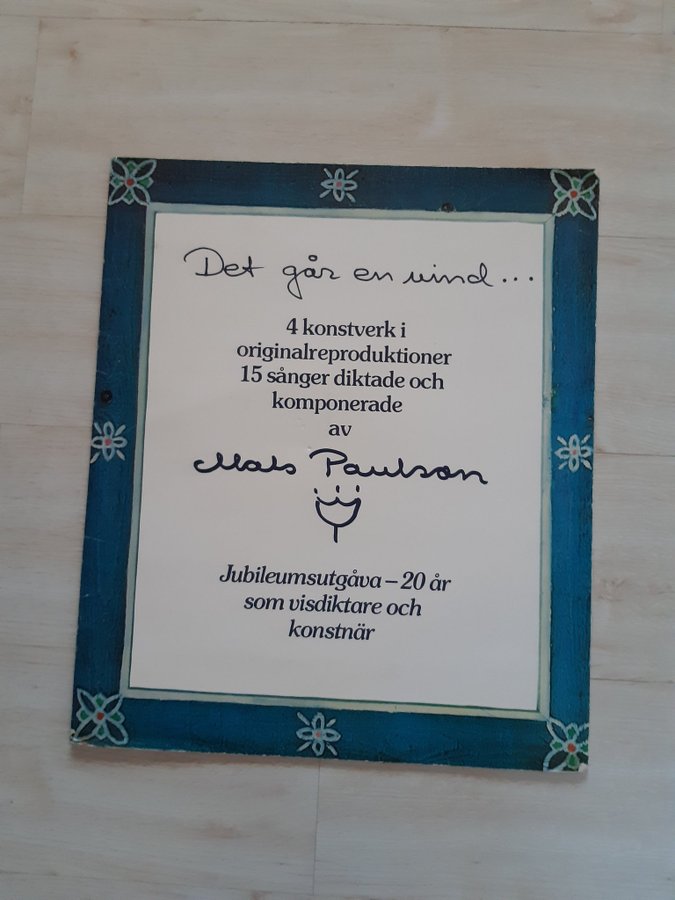 Det går en vind...
4 konstverk i
originalreproduktioner
15 sånger diktade och
komponerade
av
Mats Paulson
Jubileumsutgåva – 20 år
som visdiktare och
konstnär